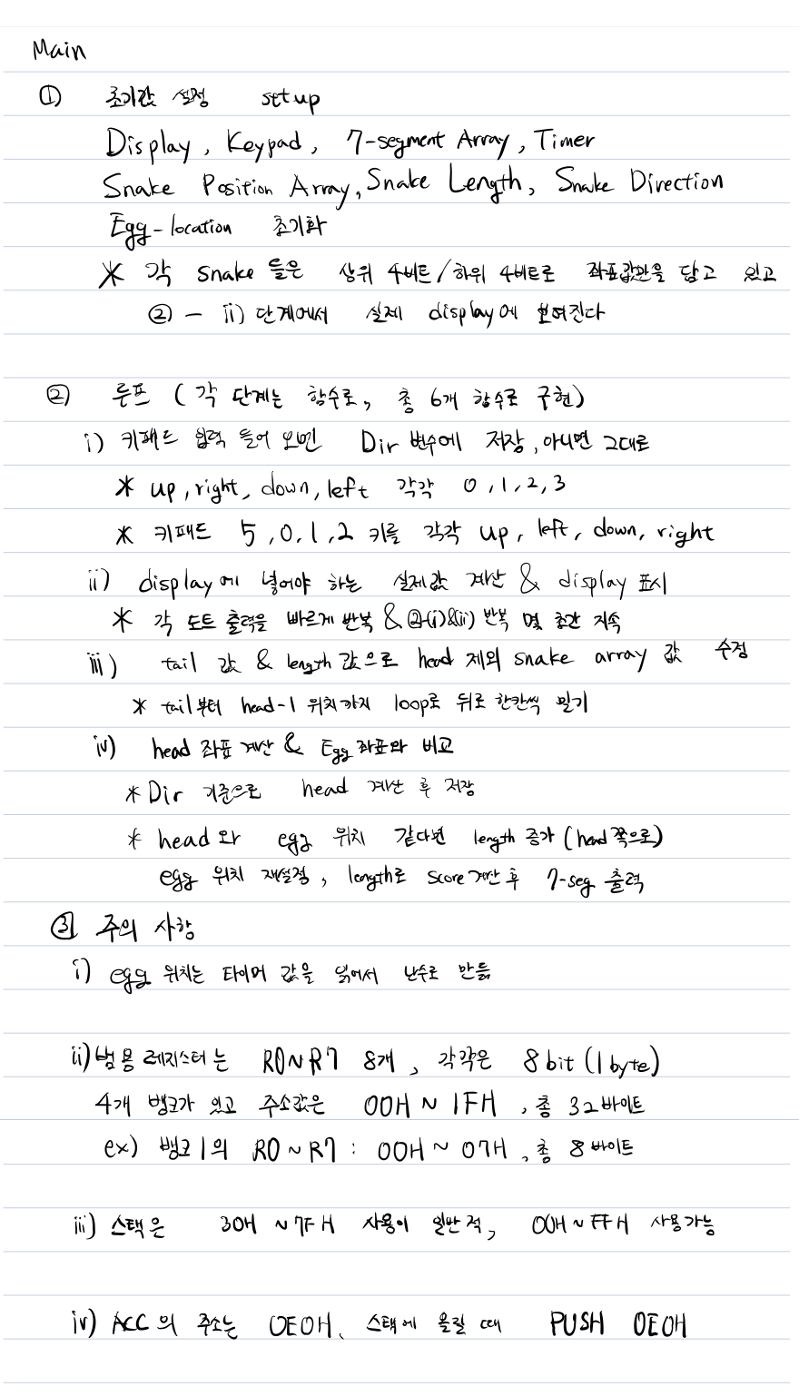 Main
① 초기값 설정 setup
Display, Keypad, 7-segment Array, Timer
Snake Position Array, Snake Length, Snake Direction
Egg-location 초기화
* 각 snake 들은 상위 4비트/하위 4비트로 좌표값만을 담고 있고
② - ii) 단계에서 실제 display에 보여진다
② 루프 (각 단계는 함수로, 총 6개 함수로 구현)
i) 키패드 입력 들어 오면 Dir 변수에 저장, 아니면 그대로
* up, right, down, left 각각 0, 1, 2, 3
* 키패드 5, 0, 1, 2 키를 각각 up, left, down, right
ii) display에 넣어야 하는 실제값 계산 & display 표시
* 각 도트 출력을 빠르게 반복 & ②-(i)&(ii) 반복 몇 초간 지속
iii) tail 값 & length 값으로 head 제외 snake array 값 수정
* tail부터 head-1 위치까지 loop로 뒤로 한칸씩 밀기
iv) head 좌표 계산 & Egg 좌표와 비교
* Dir 기준으로 head 계산 후 저장
* head와 egg 위치 같다면 length 증가 (head 쪽으로)
egg 위치 재설정, length로 score 계산 후 7-seg 출력
③ 주의 사항
i) egg 위치는 타이머 값을 읽어서 난수로 만듦
ii) 범용 레지스터는 R0~R7 8개, 각각은 8bit (1byte)
4개 뱅크가 있고 주소값은 00H ~ 1FH, 총 32바이트
ex) 뱅크1의 R0 ~ R7 : 00H ~ 07H, 총 8 바이트
iii) 스택은 30H ~ 7FH 사용이 일반적, 00H ~ FFH 사용가능
iv) ACC의 주소는 0E0H, 스택에 올릴 때 PUSH 0E0H